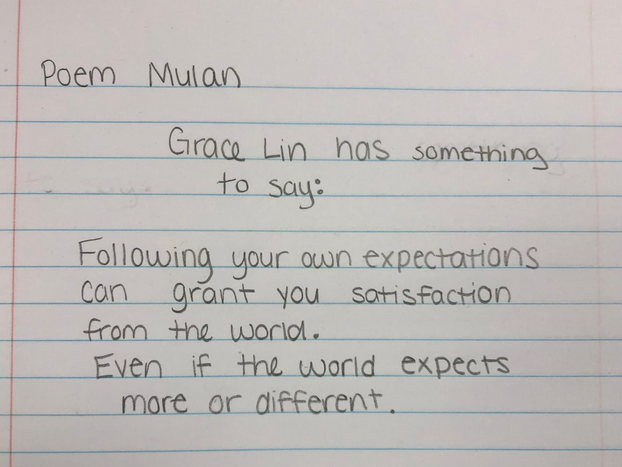 Poem Mulan
Grace Lin has something
to say:
Following your own expectations
can grant you satisfaction
from the world.
Even if the world expects
more or different.